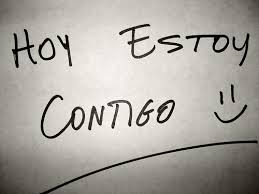 HOY ESTOY
CONTIGO :)